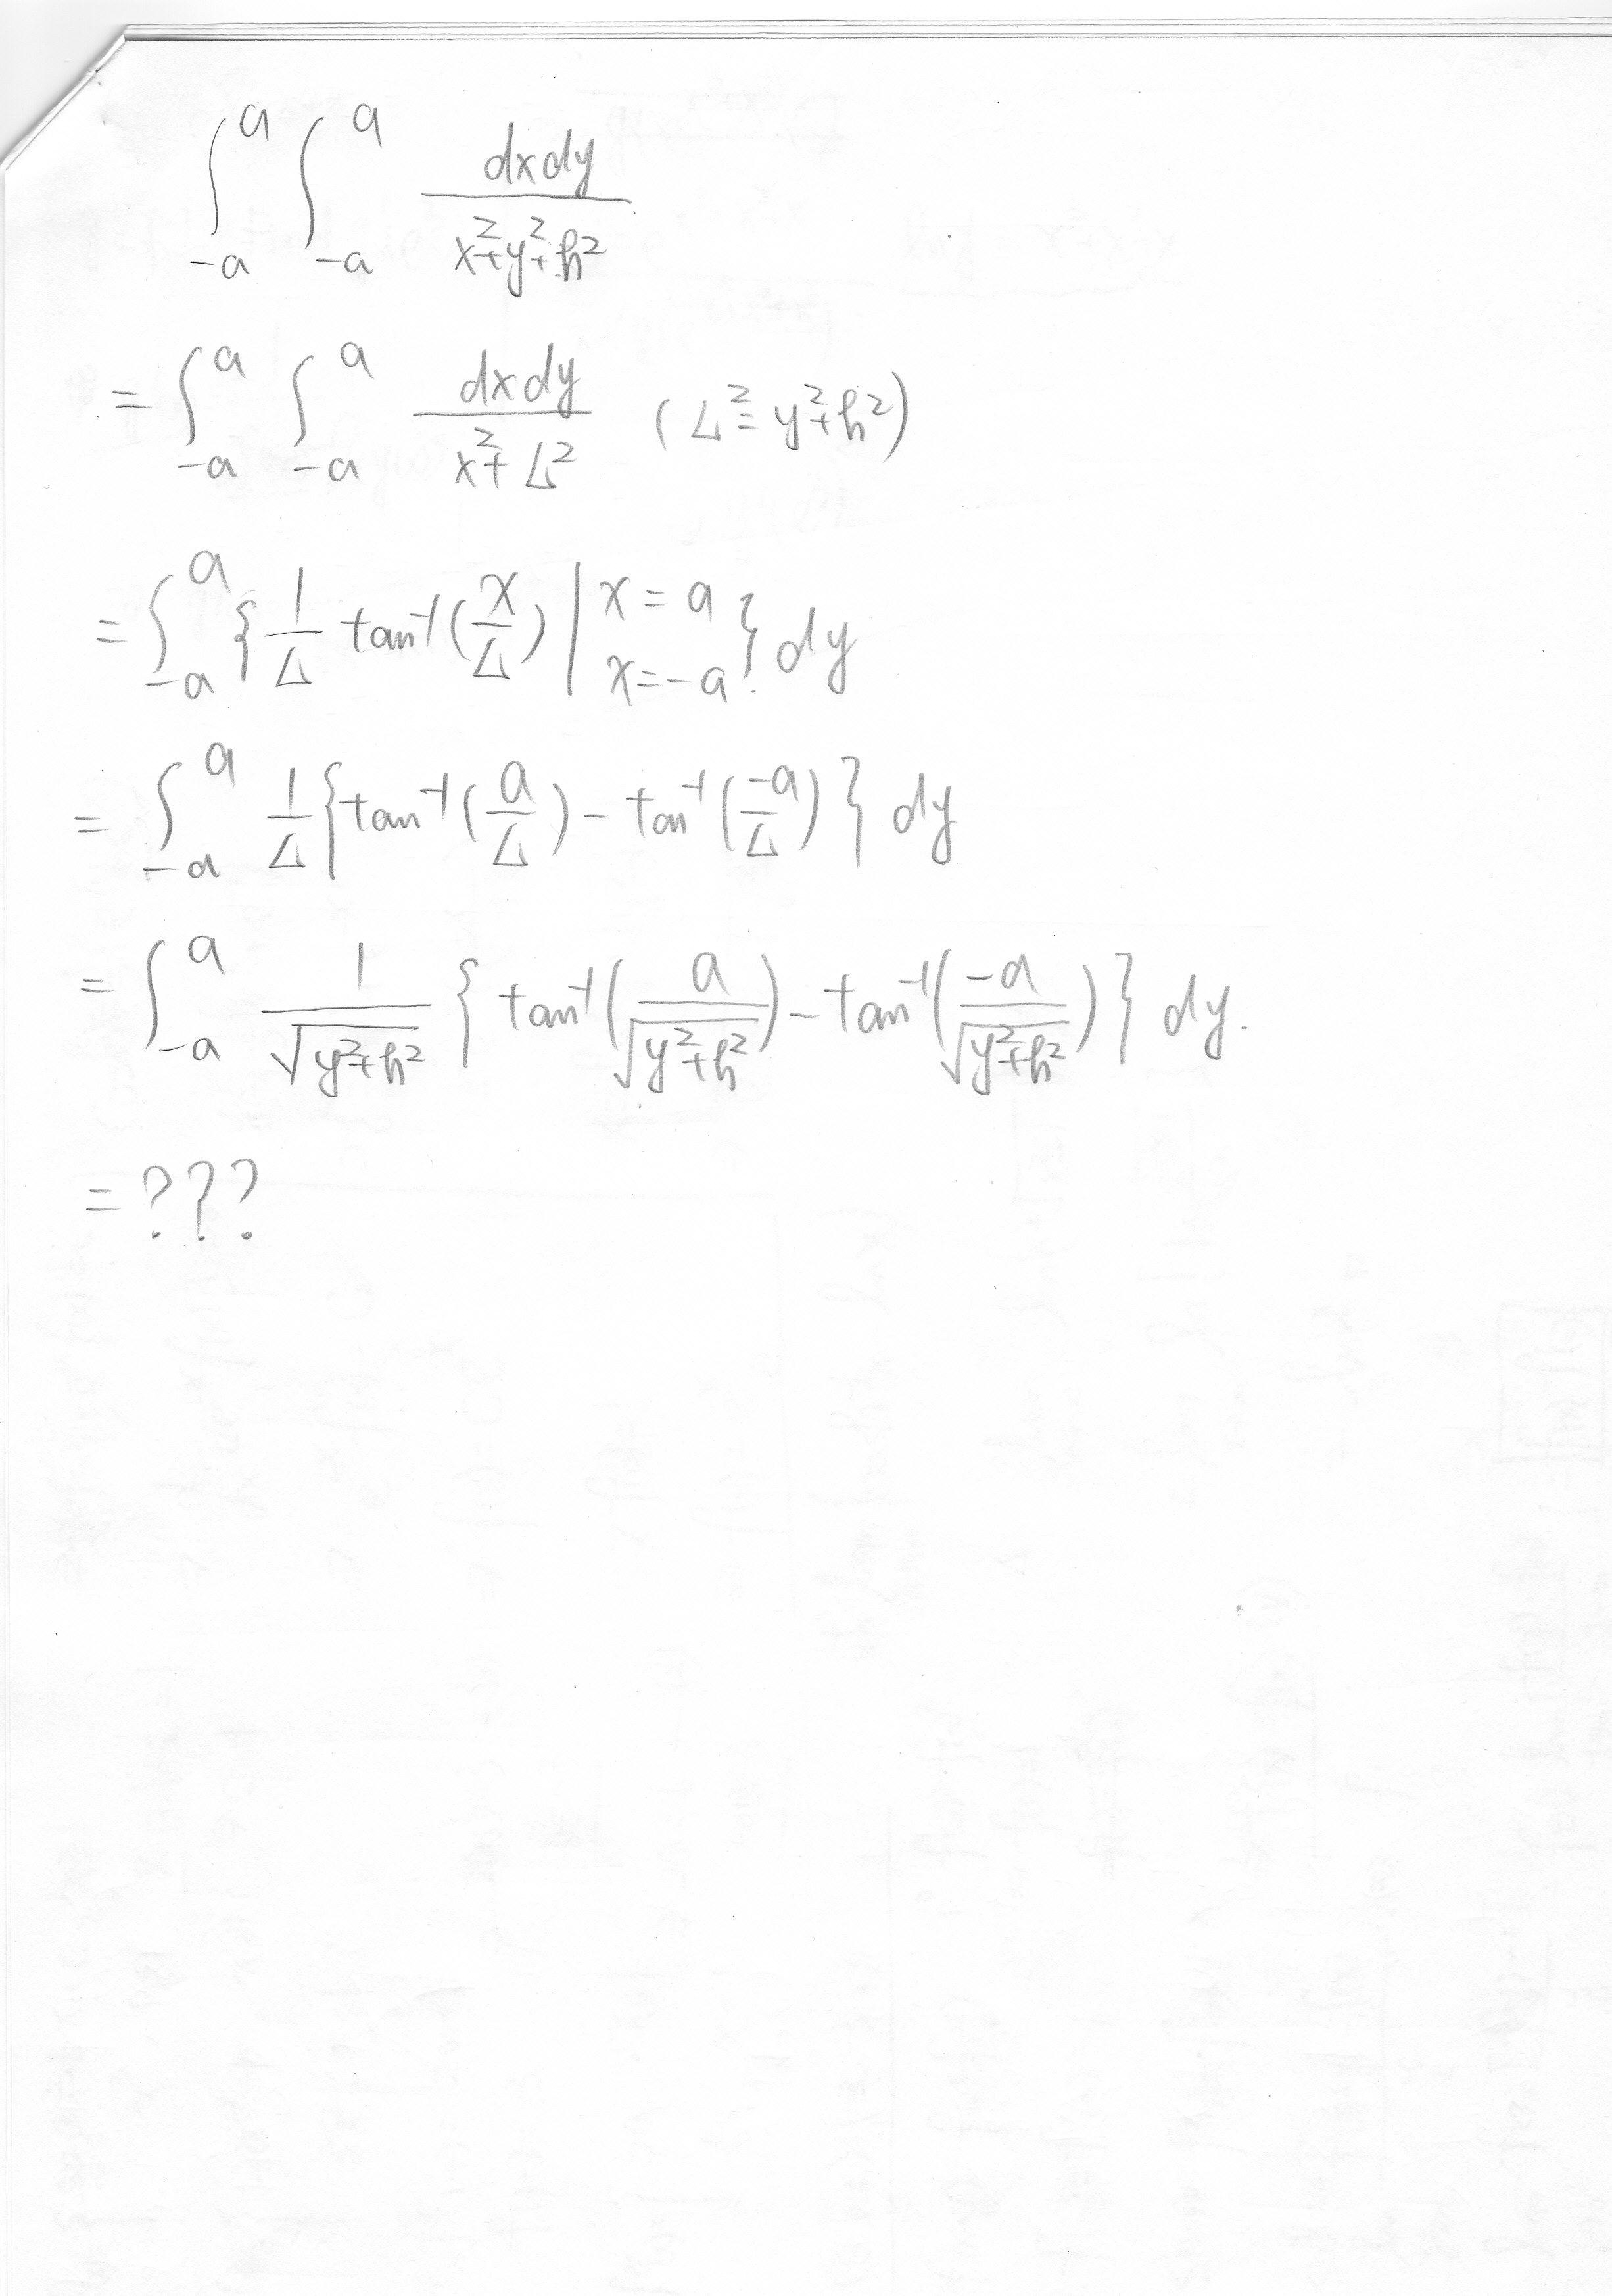 ∫_{-a}^{a} ∫_{-a}^{a} \frac{dxdy}{x²+y²+h²}
= ∫_{-a}^{a} ∫_{-a}^{a} \frac{dxdy}{x²+L²} (L²=y²+h²)
= ∫_{-a}^{a} { \frac{1}{L} tan⁻¹(\frac{x}{L}) |_{x=-a}^{x=a} } dy
= ∫_{-a}^{a} \frac{1}{L} { tan⁻¹(\frac{a}{L}) - tan⁻¹(\frac{-a}{L}) } dy
= ∫_{-a}^{a} \frac{1}{\sqrt{y²+h²}} { tan⁻¹(\frac{a}{\sqrt{y²+h²}}) - tan⁻¹(\frac{-a}{\sqrt{y²+h²}}) } dy.
= ???